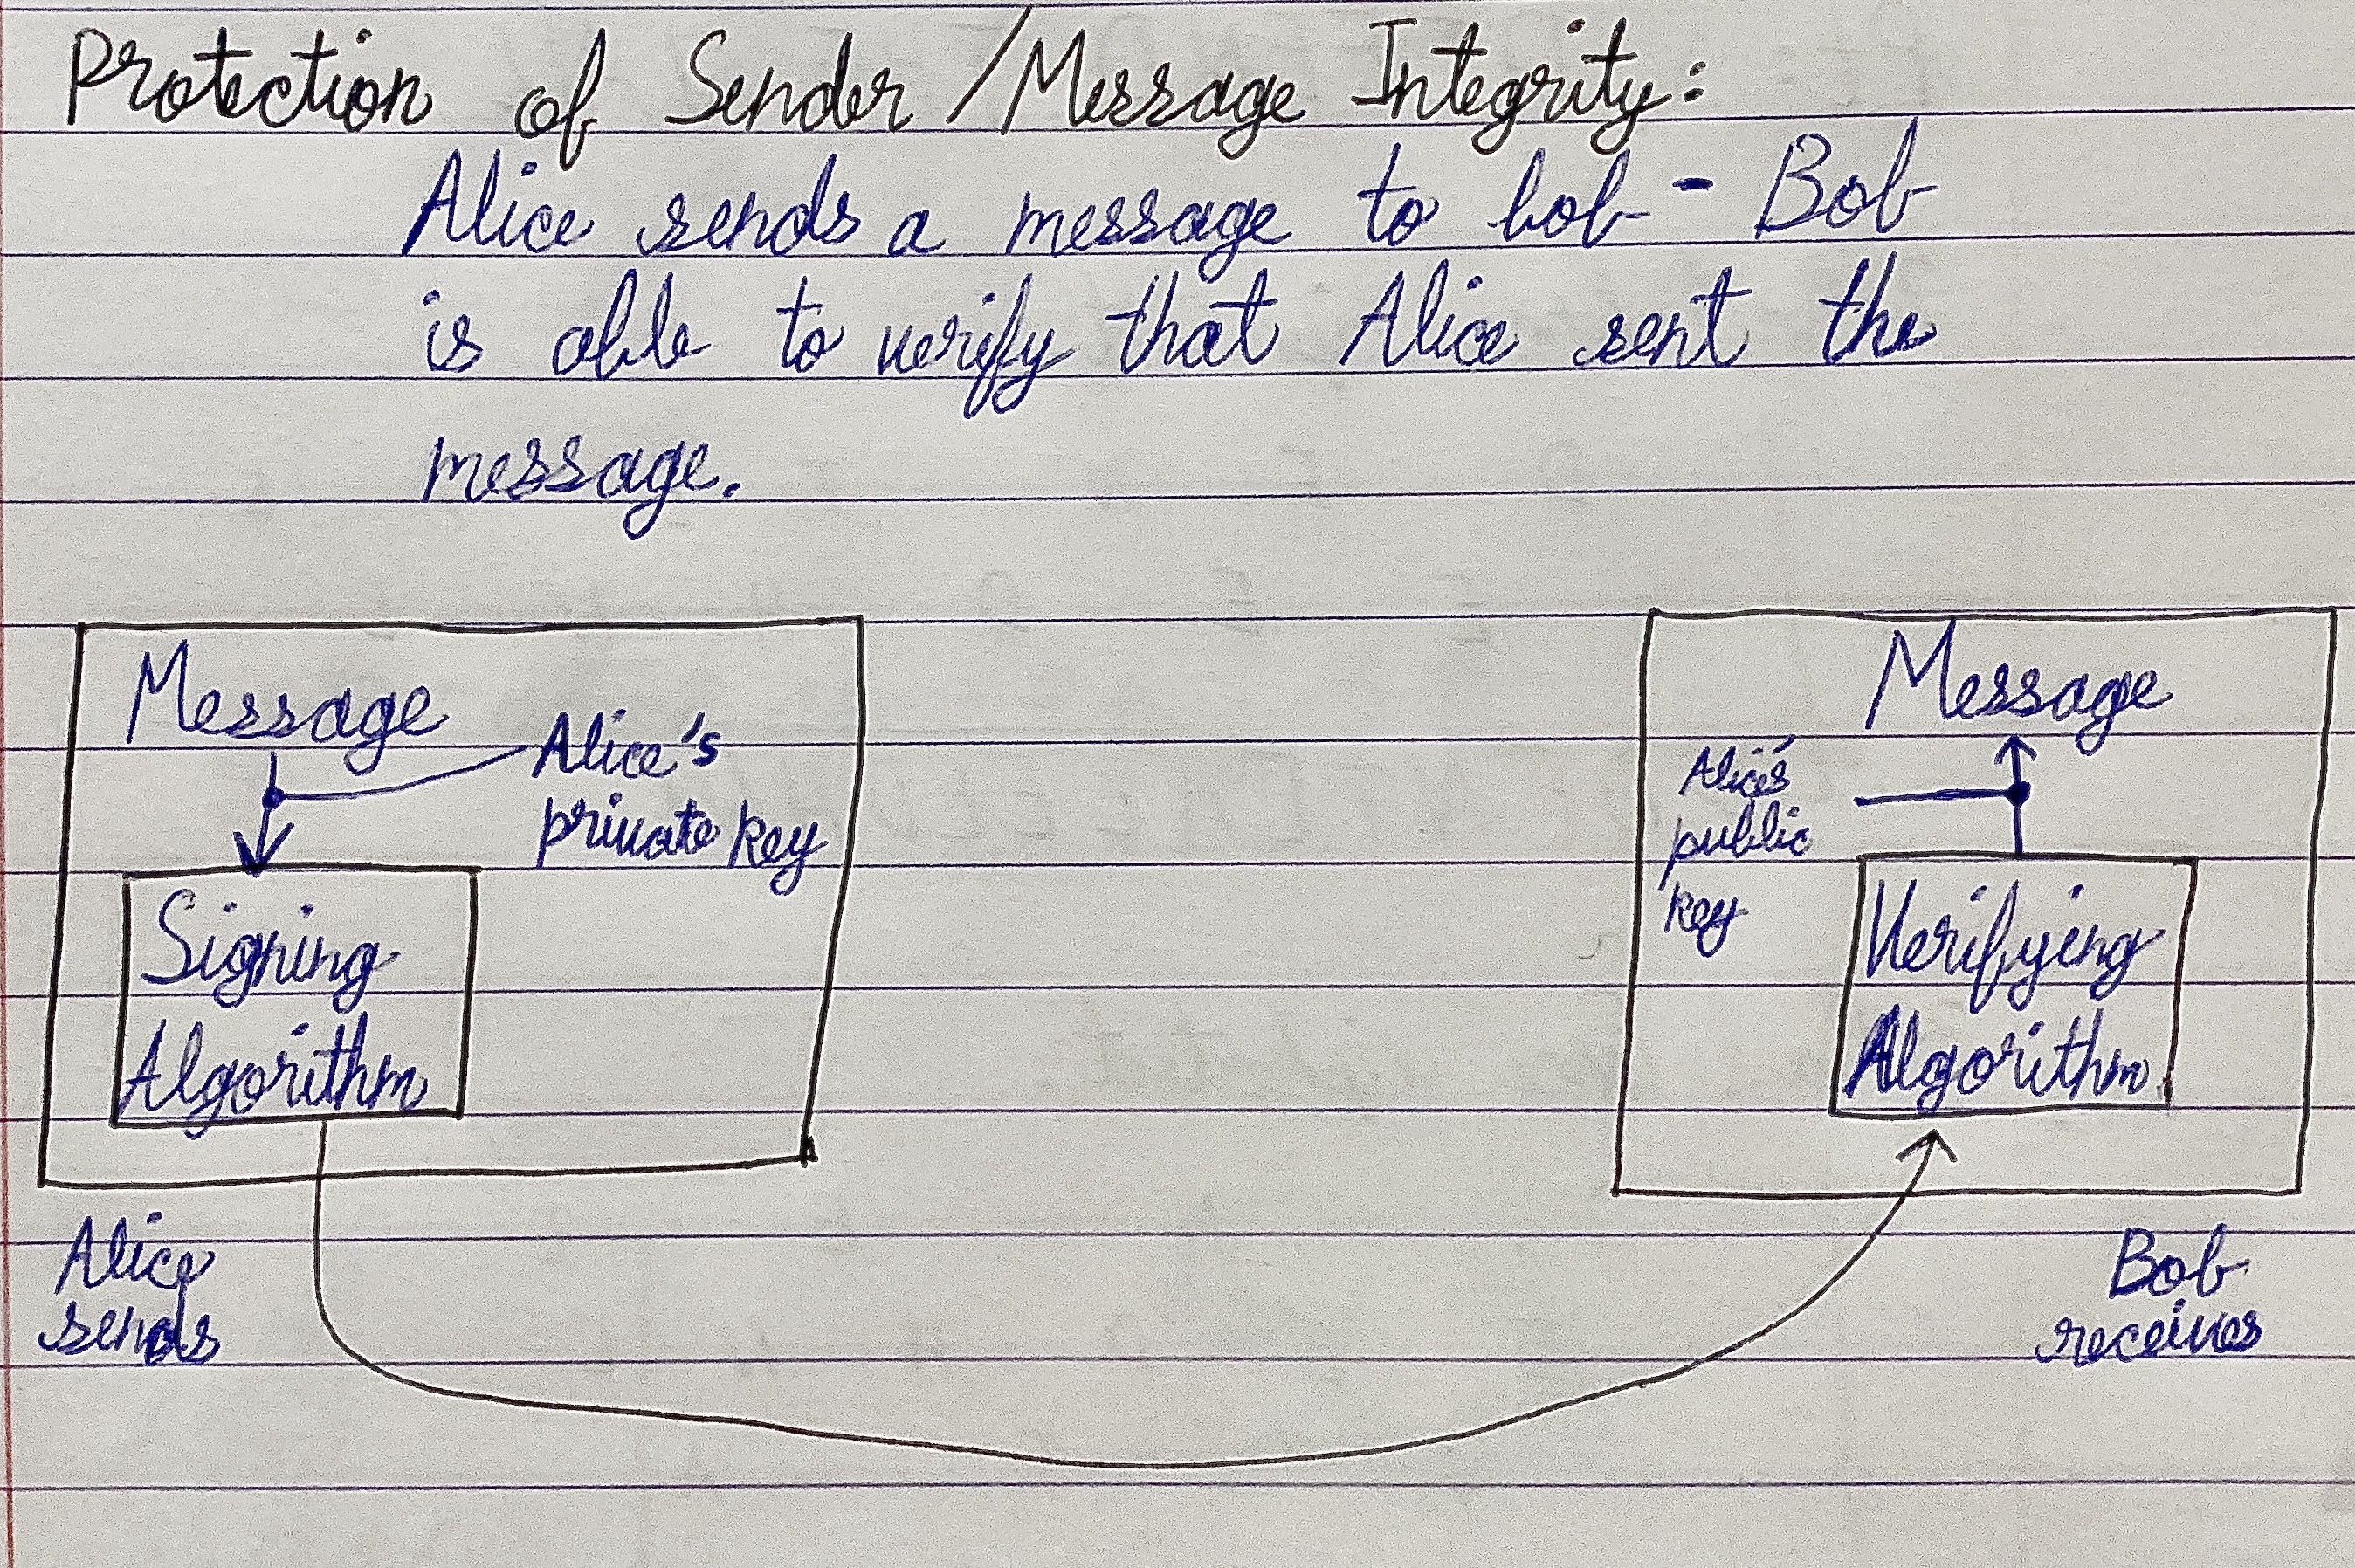 Protection of Sender/Message Integrity:
Alice sends a message to bob - Bob
is able to verify that Alice sent the
message.
Message
Alice's
private key
Signing
Algorithm
Alice
sends
Message
Alice's
public
key
Verifying
Algorithm
Bob
receives